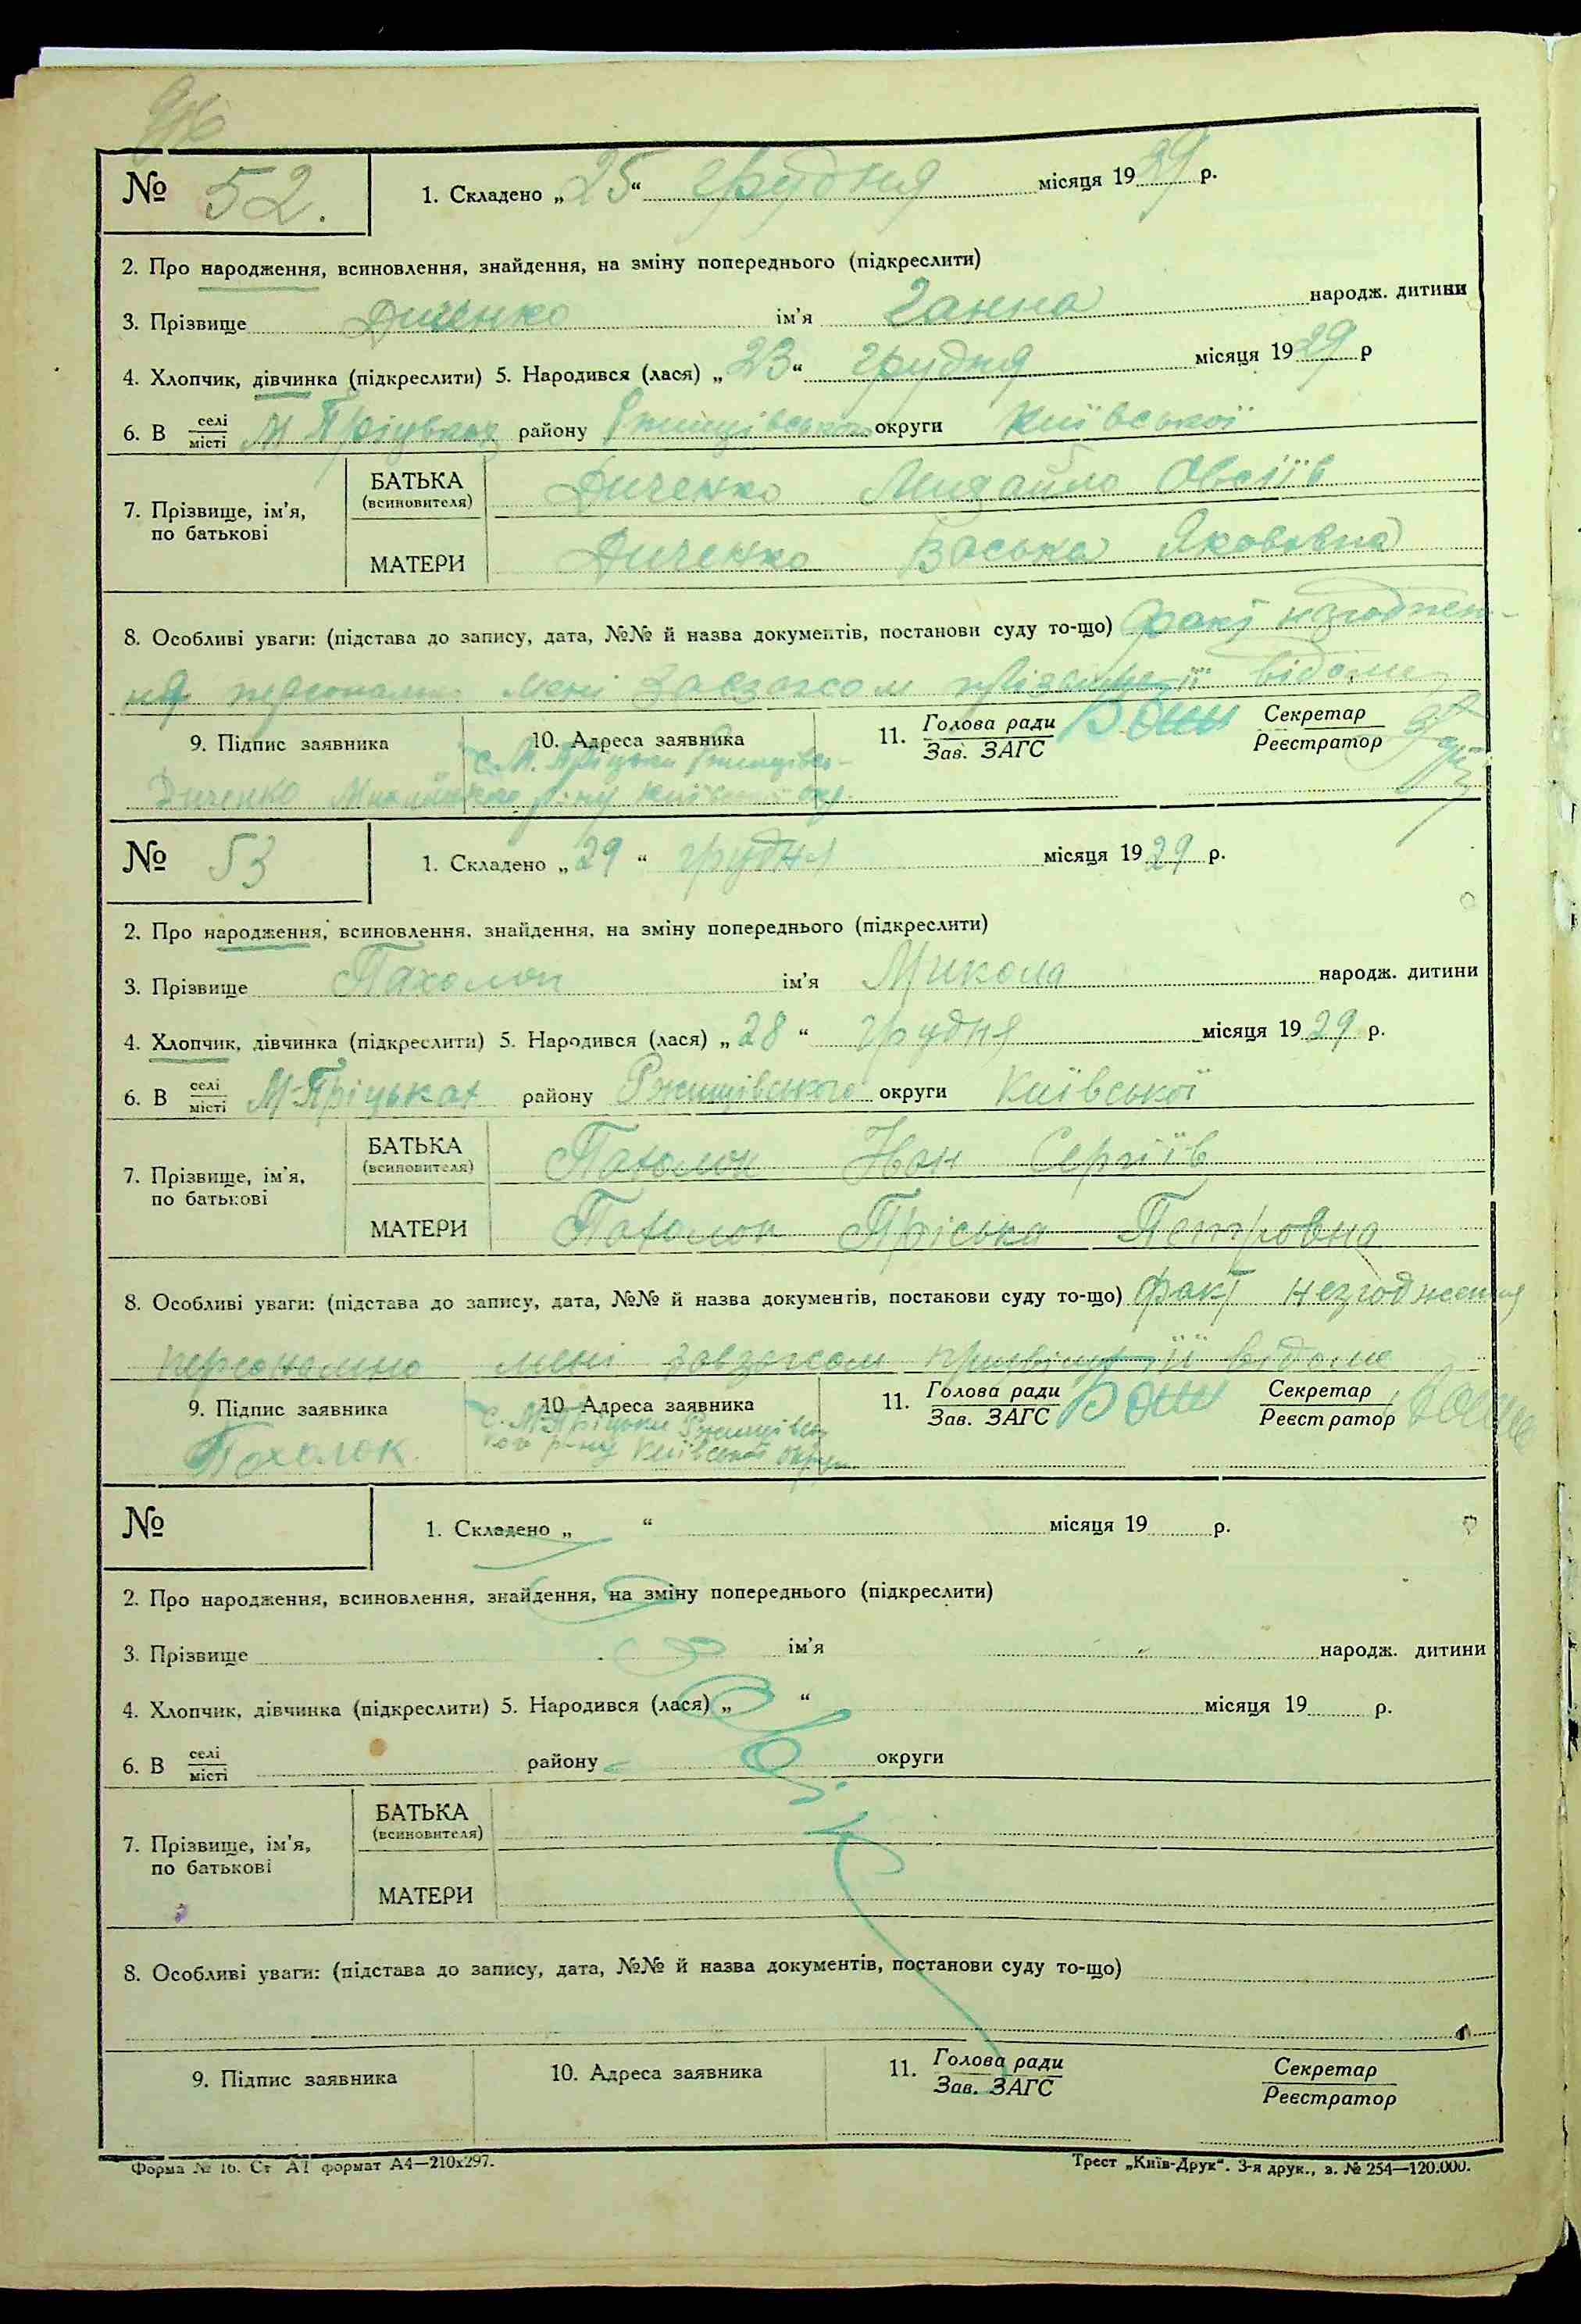 № 52.
1. Складено „25“ грудня місяця 1929 р.
2. Про народження, всиновлення, знайдення, на зміну попереднього (підкреслити)
3. Прізвище Диченко ім’я Ганна народж. дитини
4. Хлопчик, дівчинка (підкреслити) 5. Народився (лася) „23“ грудня місяця 1929 р
6. В селі/місті М Пріцьках району Ржищівського округи Київської
7. Прізвище, ім’я, по батькові
БАТЬКА (всиновителя) Диченко Михайло Овсіїв
МАТЕРИ Диченко Васька Якововна
8. Особливі уваги: (підстава до запису, дата, №№ й назва документів, постанови суду то-що) факт
мені відоме
9. Підпис заявника
10. Адреса заявника
11. Голова ради / Зав. ЗАГС
Секретар / Реєстратор
с. М. Пріцьки Ржищівсь-
Диченко кого р-ну Київської окр.
№ 53
1. Складено „29“ грудня місяця 1929 р.
2. Про народження, всиновлення, знайдення, на зміну попереднього (підкреслити)
3. Прізвище Пахолок ім’я Микола народж. дитини
4. Хлопчик, дівчинка (підкреслити) 5. Народився (лася) „28“ грудня місяця 1929 р.
6. В селі/місті М-Пріцьках району Ржищівського округи Київської
7. Прізвище, ім’я, по батькові
БАТЬКА (всиновителя) Пахолок Іван Сергіїв
МАТЕРИ Пахолок Пріська Петровна
8. Особливі уваги: (підстава до запису, дата, №№ й назва документів, постанови суду то-що) факт
персонально мені завзагсом її відоме
9. Підпис заявника
10. Адреса заявника
11. Голова ради / Зав. ЗАГС
Секретар / Реєстратор
Похолок
с. М-Пріцьки Ржищівсь
кого р-ну Київської округи
№
1. Складено „ “ місяця 19 р.
2. Про народження, всиновлення, знайдення, на зміну попереднього (підкреслити)
3. Прізвище ім’я народж. дитини
4. Хлопчик, дівчинка (підкреслити) 5. Народився (лася) „ “ місяця 19 р.
6. В селі/місті району округи
7. Прізвище, ім’я, по батькові
БАТЬКА (всиновителя)
МАТЕРИ
8. Особливі уваги: (підстава до запису, дата, №№ й назва документів, постанови суду то-що)
9. Підпис заявника
10. Адреса заявника
11. Голова ради / Зав. ЗАГС
Секретар / Реєстратор
Форма № 16. Ст А1 формат А4—210х297.
Трест „Київ-Друк“. 3-я друк., з. № 254—120.000.